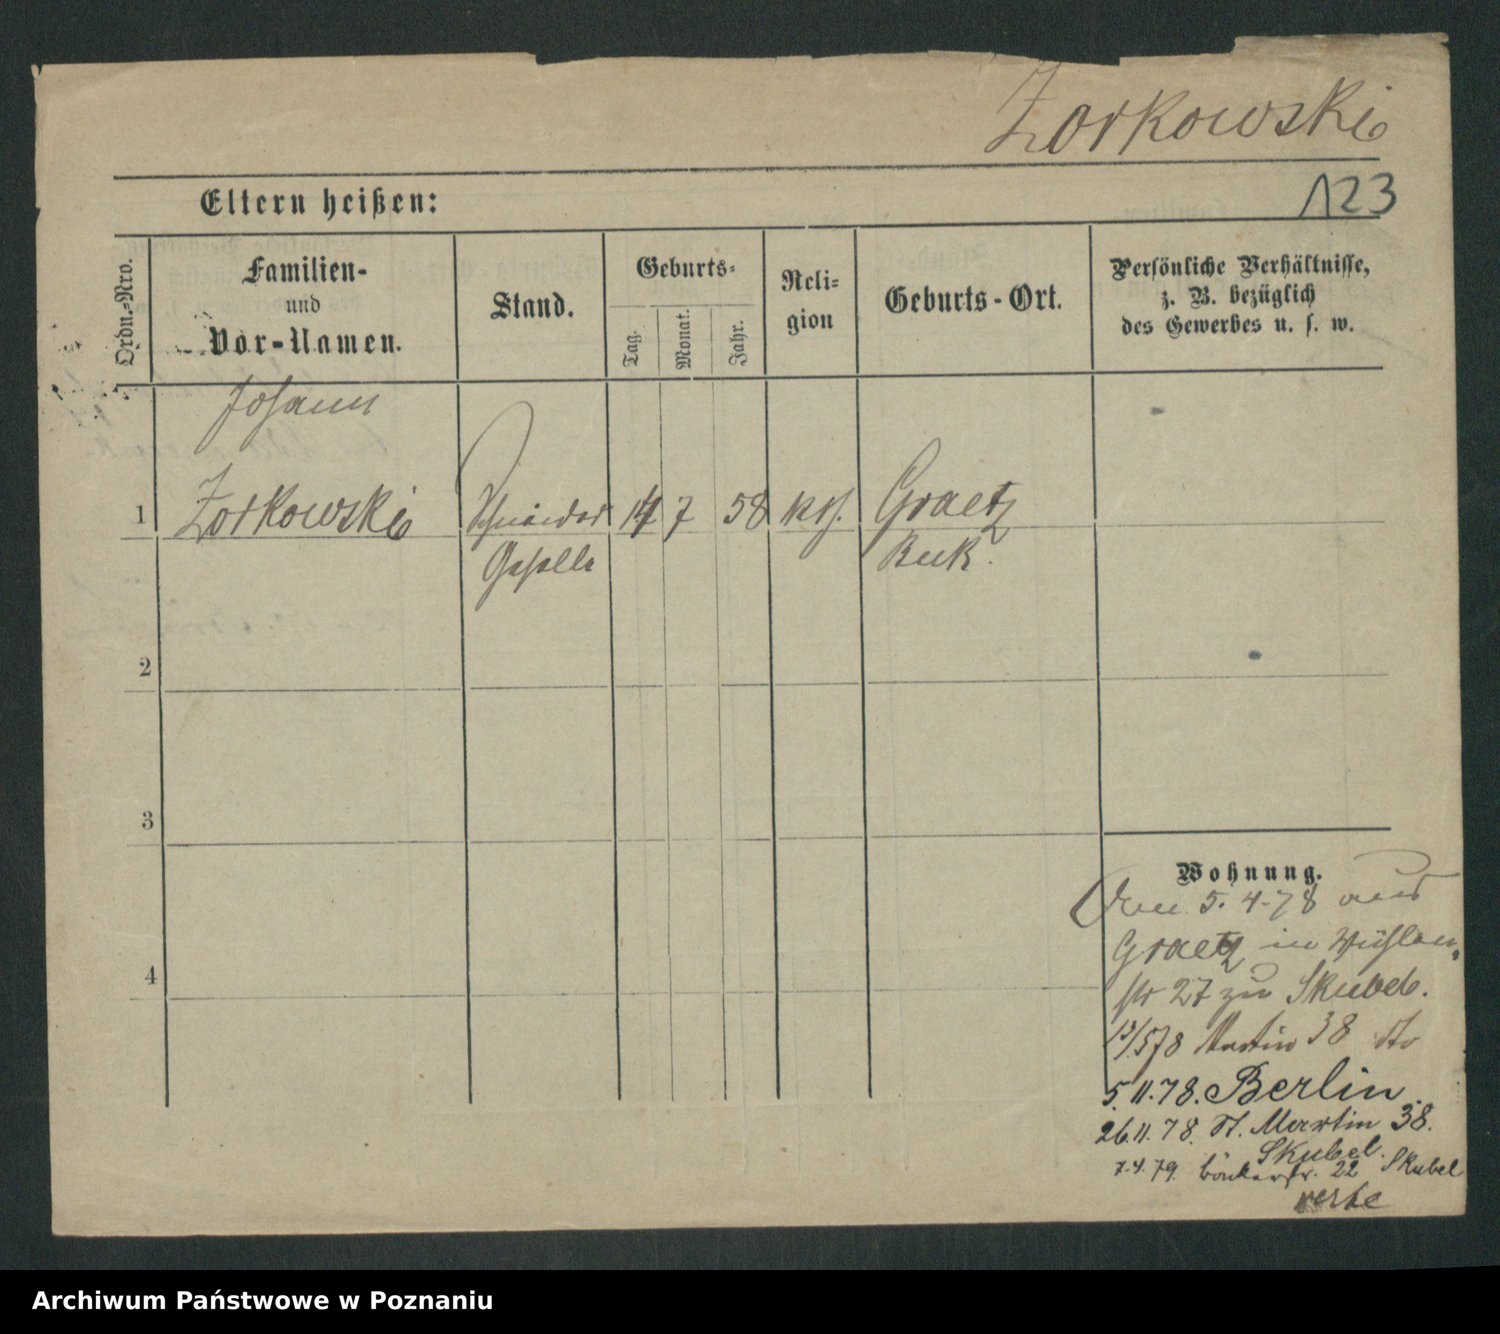 Zorkowski
123
Eltern heißen:
Ordn.-Nro.
Familien-
und
Vor-Namen.
Stand.
Geburts-
Tag.
Monat.
Jahr.
Reli-
gion
Geburts-Ort.
Persönliche Verhältnisse,
z. B. bezüglich
des Gewerbes u. s. w.
Johann
1 Zorkowski Schneider 14 7 58 kath. Graetz
Geselle Buk.
2
3
4
Wohnung.
Den 5. 4. 78 aus
Graetz in Mühlen-
str 27 zu Skubel.
13/5 78 Martin 38 do
5. 11. 78. Berlin
26. 11. 78. St. Martin 38.
Skubel.
7. 4. 79. 22 Skubel